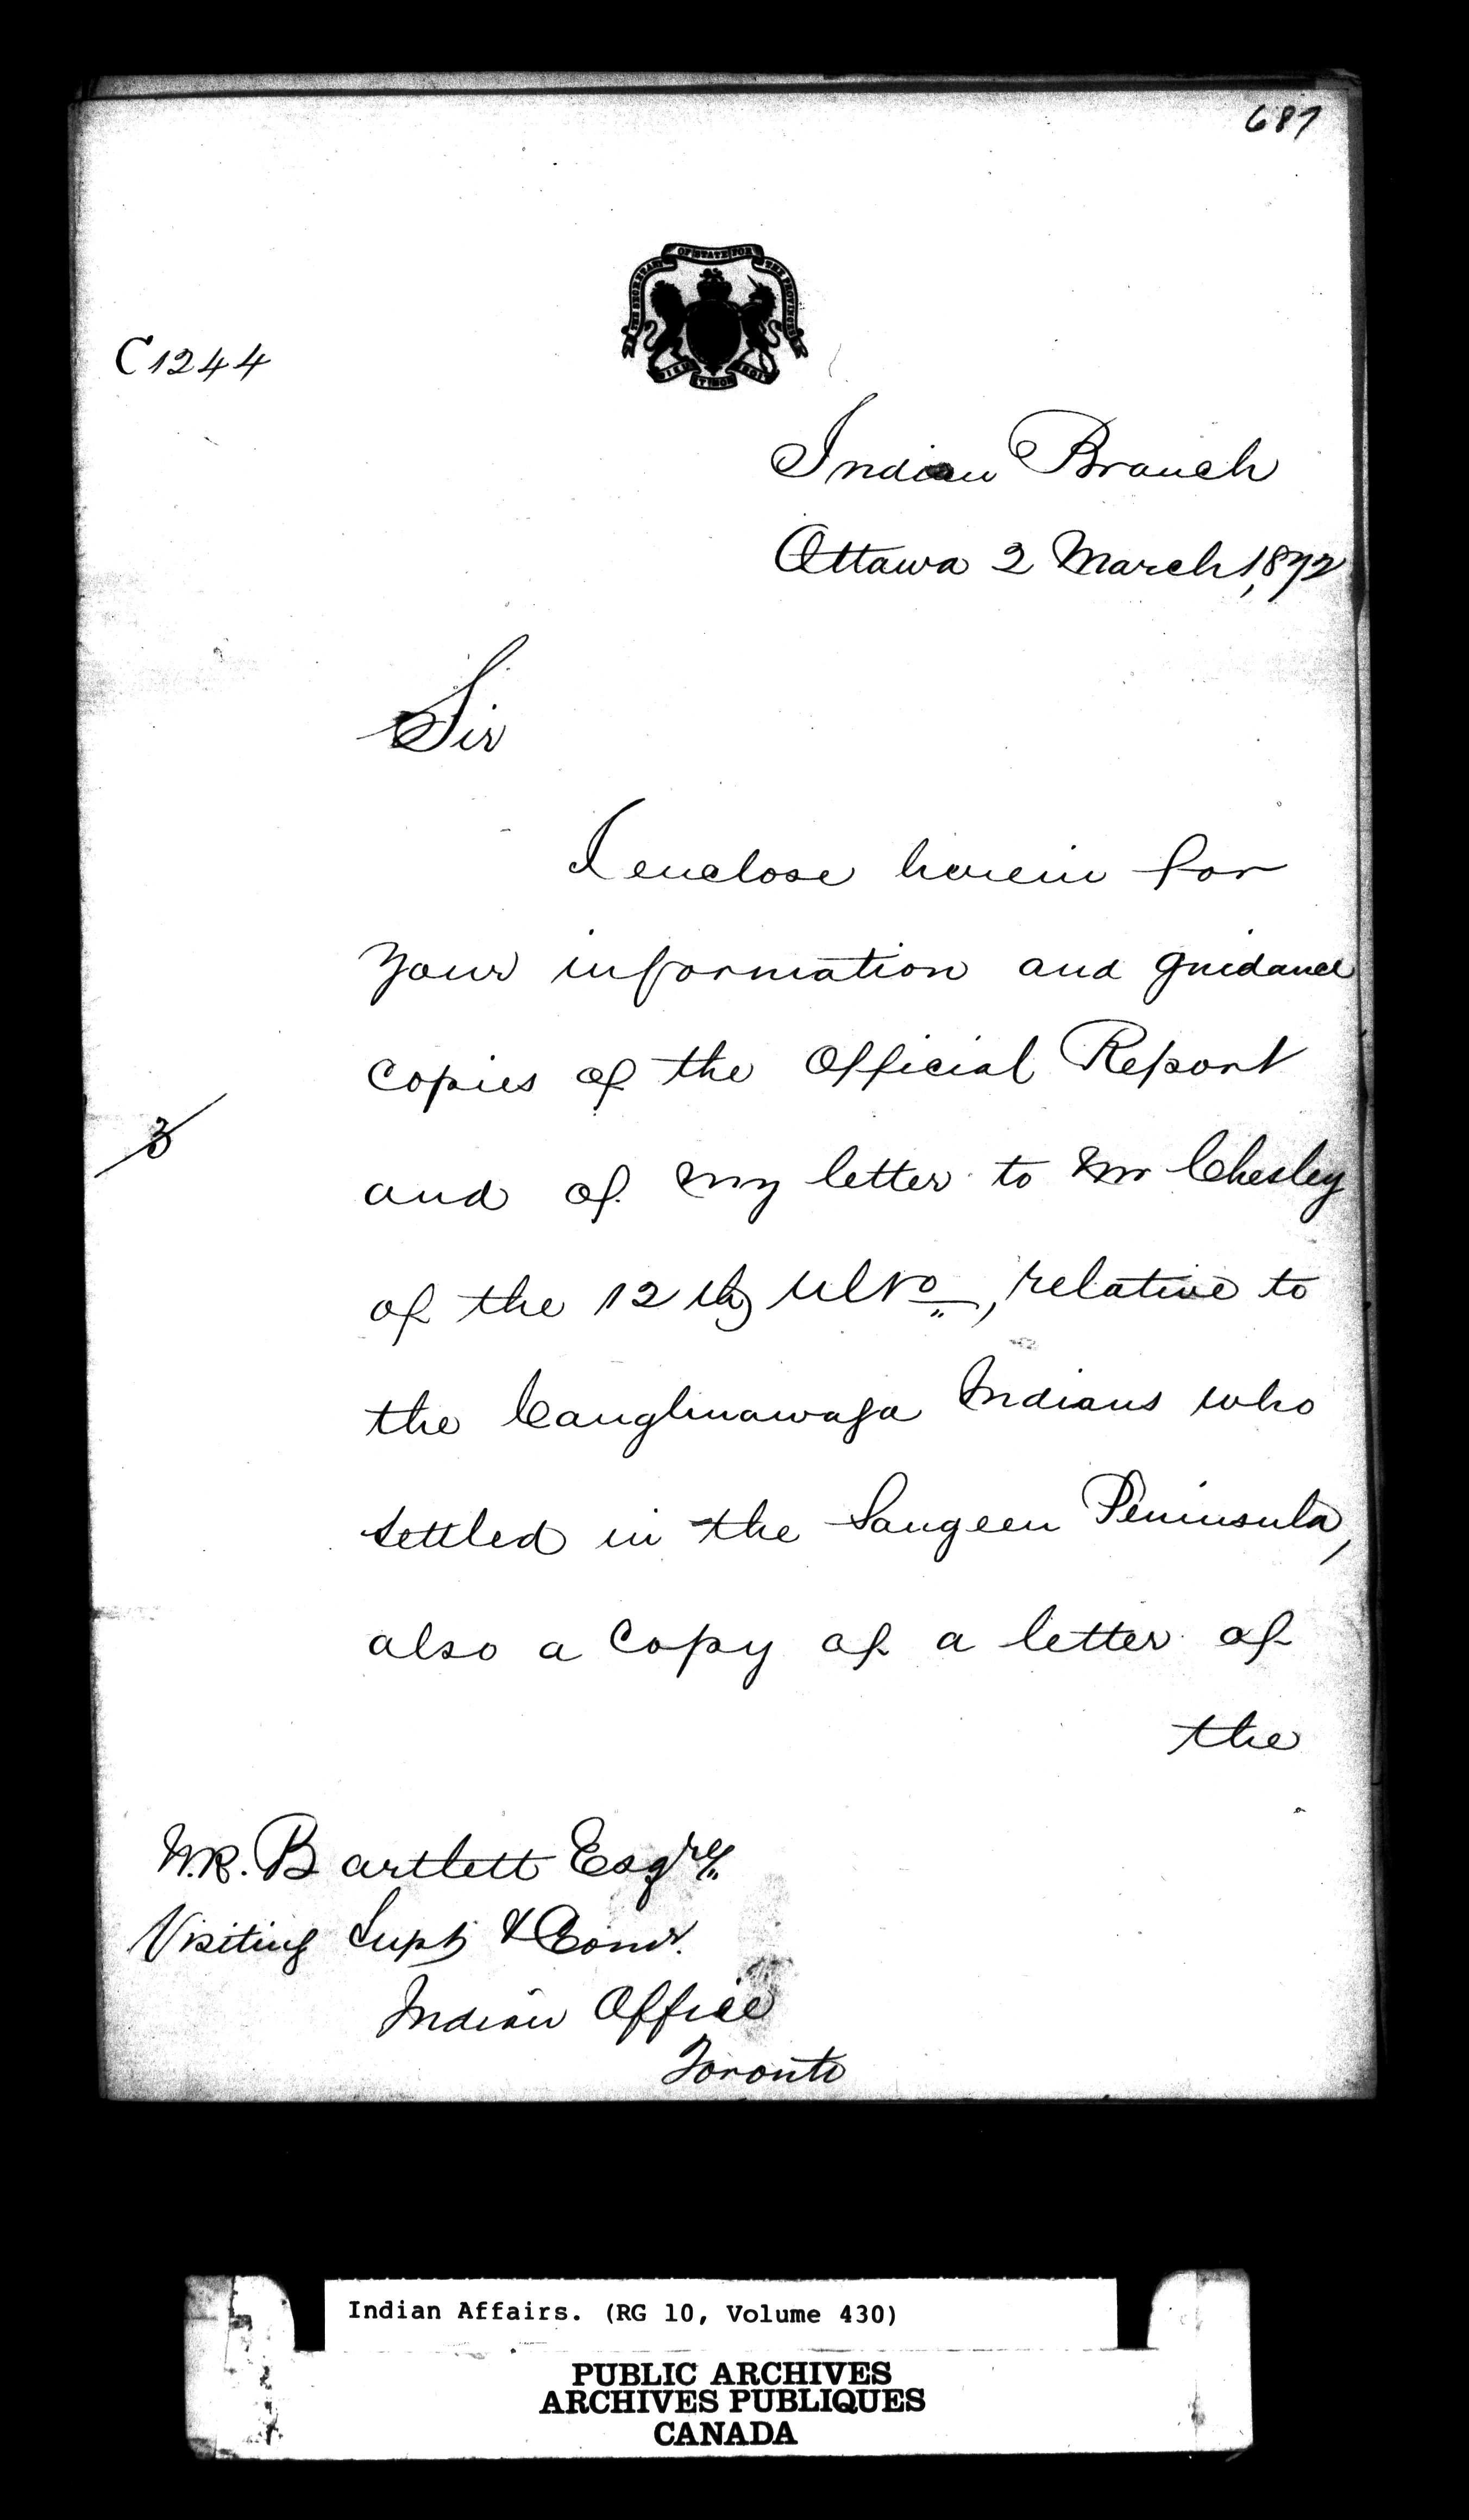 687
THE SECRETARY OF STATE FOR THE PROVINCES
DIEU ET MON DROIT
C1244
Indian Branch
Ottawa 2 March, 1872
Sir
I enclose herein for
your information and guidance
copies of the Official Report
3
and of my letter to Mr Chesley
of the 12th Ulto, relative to
the Caughnawaga Indians who
settled in the Saugeen Peninsula,
also a copy of a letter of
the
W.R. Bartlett Esqre
Visiting Supt & Comr.
Indian Office
Toronto
Indian Affairs. (RG 10, Volume 430)
PUBLIC ARCHIVES
ARCHIVES PUBLIQUES
CANADA